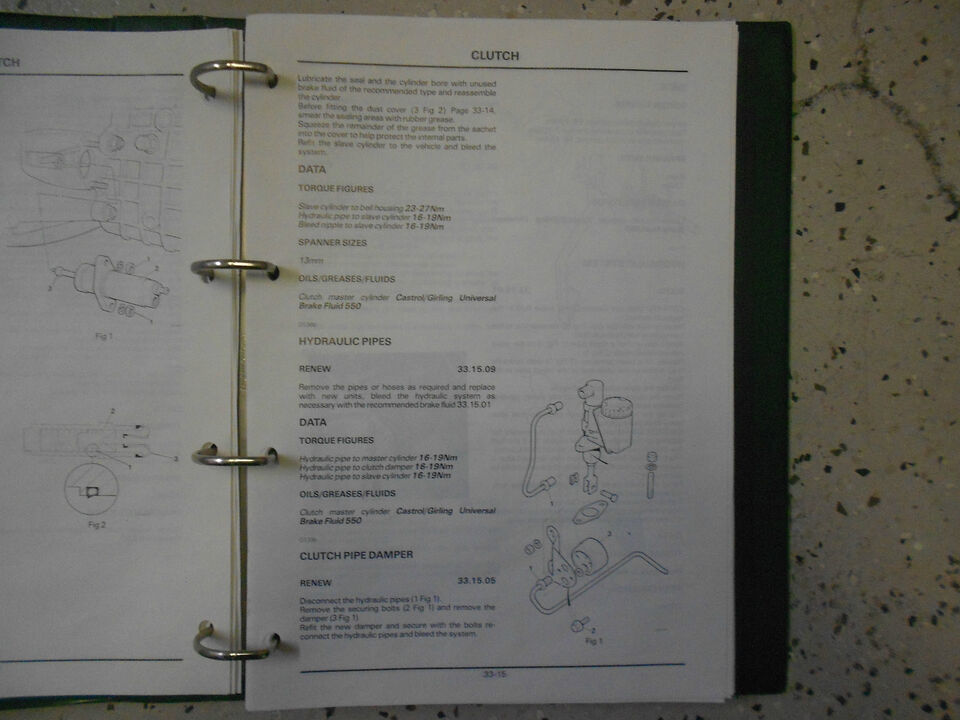 TCH
3
2
1
Fig 1
2
1
3
Fig 2
CLUTCH
Lubricate the seal and the cylinder bore with unused
brake fluid of the recommended type and reassemble
the cylinder.
Before fitting the dust cover (3 Fig 2) Page 33-14,
smear the sealing areas with rubber grease.
Squeeze the remainder of the grease from the sachet
into the cover to help protect the internal parts.
Refit the slave cylinder to the vehicle and bleed the
system.
DATA
TORQUE FIGURES
Slave cylinder to bell housing 23-27Nm
Hydraulic pipe to slave cylinder 16-19Nm
Bleed nipple to slave cylinder 16-19Nm
SPANNER SIZES
13mm
OILS/GREASES/FLUIDS
Clutch master cylinder Castrol/Girling Universal
Brake Fluid 550
HYDRAULIC PIPES
RENEW 33.15.09
Remove the pipes or hoses as required and replace
with new units, bleed the hydraulic system as
necessary with the recommended brake fluid 33.15.01
DATA
TORQUE FIGURES
Hydraulic pipe to master cylinder 16-19Nm
Hydraulic pipe to clutch damper 16-19Nm
Hydraulic pipe to slave cylinder 16-19Nm
OILS/GREASES/FLUIDS
Clutch master cylinder Castrol/Girling Universal
Brake Fluid 550
CLUTCH PIPE DAMPER
RENEW 33.15.05
Disconnect the hydraulic pipes (1 Fig 1).
Remove the securing bolts (2 Fig 1) and remove the
damper (3 Fig 1)
Refit the new damper and secure with the bolts re-
connect the hydraulic pipes and bleed the system.
1
3
2
Fig 1
33-15